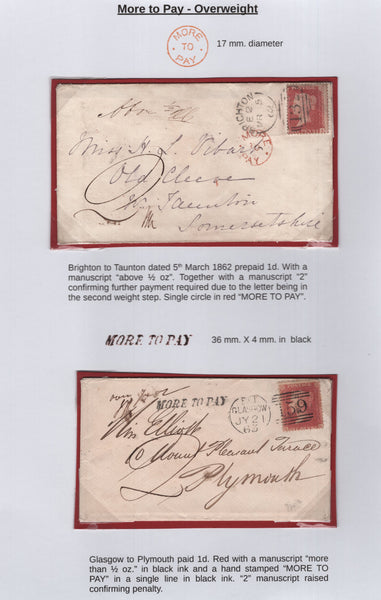 More to Pay - Overweight
MORE
TO
PAY
17 mm. diameter
Above ½ oz
Miss H. L.
Old Cleeve
Taunton
Somersetshire
2
BRIGHTON
MORE
PAY
Brighton to Taunton dated 5th March 1862 prepaid 1d. With a
manuscript “above ½ oz”. Together with a manuscript “2”
confirming further payment required due to the letter being in
the second weight step. Single circle in red “MORE TO PAY”.
MORE TO PAY
36 mm. X 4 mm. in black
MORE TO PAY
GLASGOW
JY 21
159
Miss Elliott
6 Mount Pleasant Terrace
Plymouth
2
Glasgow to Plymouth paid 1d. Red with a manuscript “more
than ½ oz.” in black ink and a hand stamped “MORE TO
PAY” in a single line in black ink. “2” manuscript raised
confirming penalty.